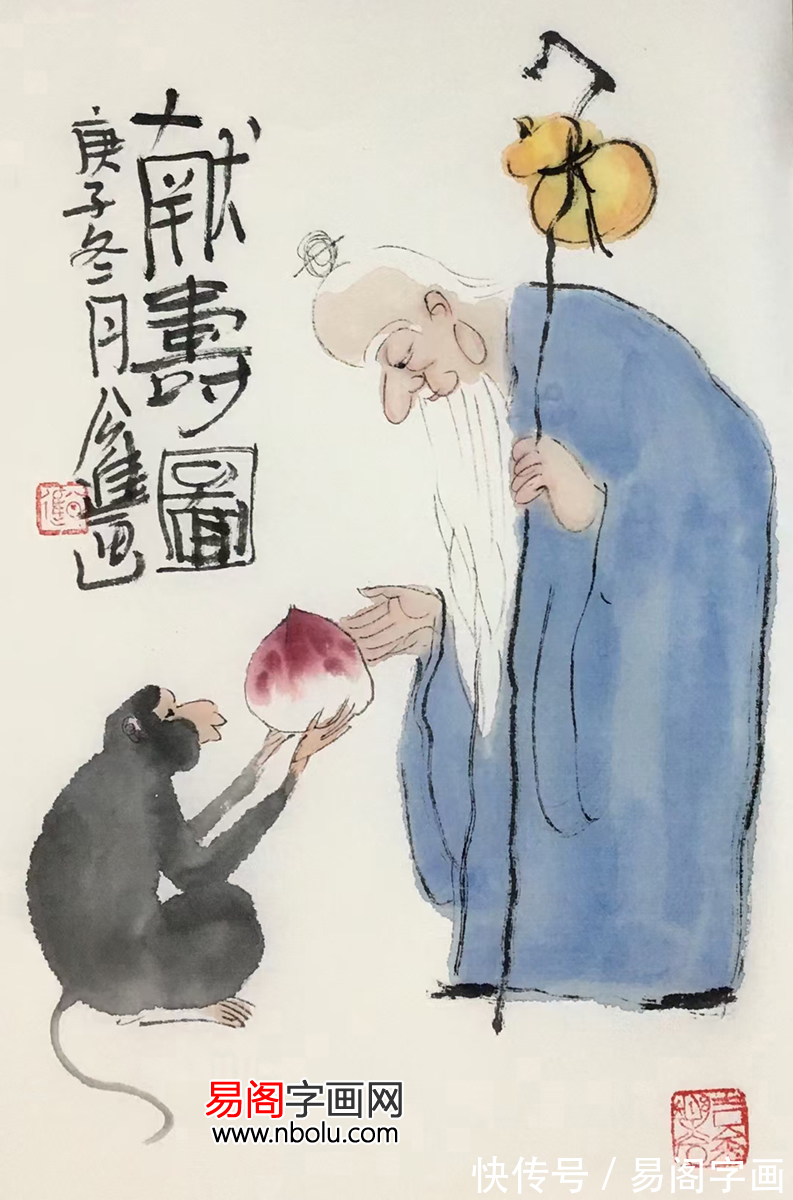 献壽圖
庚子冬月
易阁字画网
www.nbolu.com
快传号 / 易阁字画